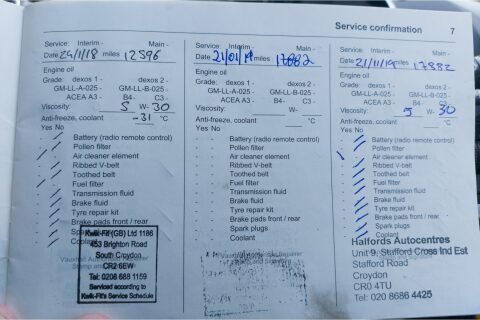 Service confirmation 7
Service: Interim - Main -
Date 24/1/18 miles 12596
Engine oil
Grade: dexos 1 - dexos 2 -
GM-LL-A-025 - GM-LL-B-025 -
ACEA A3 - B4- C3 -
Viscosity: 5 W- 30
Anti-freeze, coolant -31 °C
Yes No
Battery (radio remote control)
Pollen filter
Air cleaner element
Ribbed V-belt
Toothed belt
Fuel filter
Transmission fluid
Brake fluid
Tyre repair kit
Brake pads front / rear
Spark plugs
Coolant
Kwik-Fit (GB) Ltd 1186
453 Brighton Road
South Croydon
CR2 6EW
Tel: 0208 688 1159
Serviced according to
Kwik-Fit's Service Schedule
Service: Interim - Main -
Date 21/01/19 miles 17882
Engine oil
Grade: dexos 1 - dexos 2 -
GM-LL-A-025 - GM-LL-B-025 -
ACEA A3 - B4- C3 -
Viscosity: W-
Anti-freeze, coolant °C
Yes No
- - Battery (radio remote control)
- - Pollen filter
- - Air cleaner element
- - Ribbed V-belt
- - Toothed belt
- - Fuel filter
- - Transmission fluid
- - Brake fluid
- - Tyre repair kit
- - Brake pads front / rear
- - Spark plugs
- - Coolant
Service: Interim - Main -
Date 21/11/19 miles 17882
Engine oil
Grade: dexos 1 - dexos 2 -
GM-LL-A-025 - GM-LL-B-025 -
ACEA A3 - B4- C3 -
Viscosity: 5 W- 30
Anti-freeze, coolant °C
Yes No
Battery (radio remote control)
Pollen filter
Air cleaner element
Ribbed V-belt
Toothed belt
Fuel filter
Transmission fluid
Brake fluid
Tyre repair kit
Brake pads front / rear
Spark plugs
Coolant
Halfords Autocentres
Unit 9, Stafford Cross Ind Est
Stafford Road
Croydon
CR0 4TU
Tel: 020 8686 4425